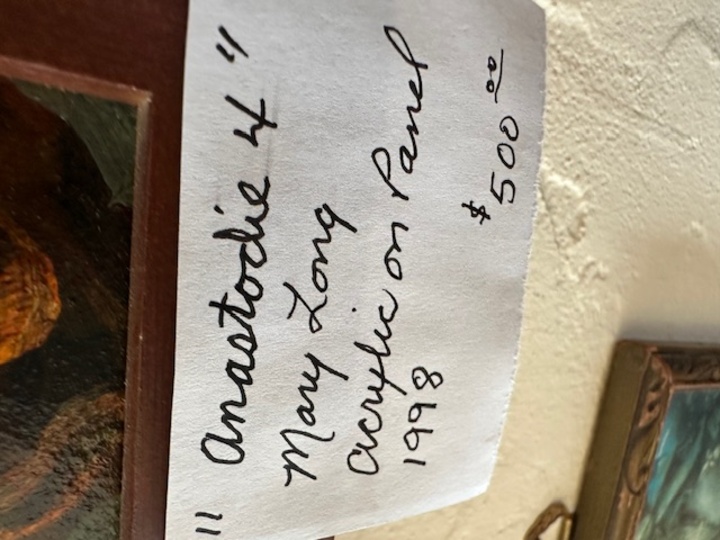 "Anastodie 4"
Mary Long
Acrylic on Panel
1998
$500.00